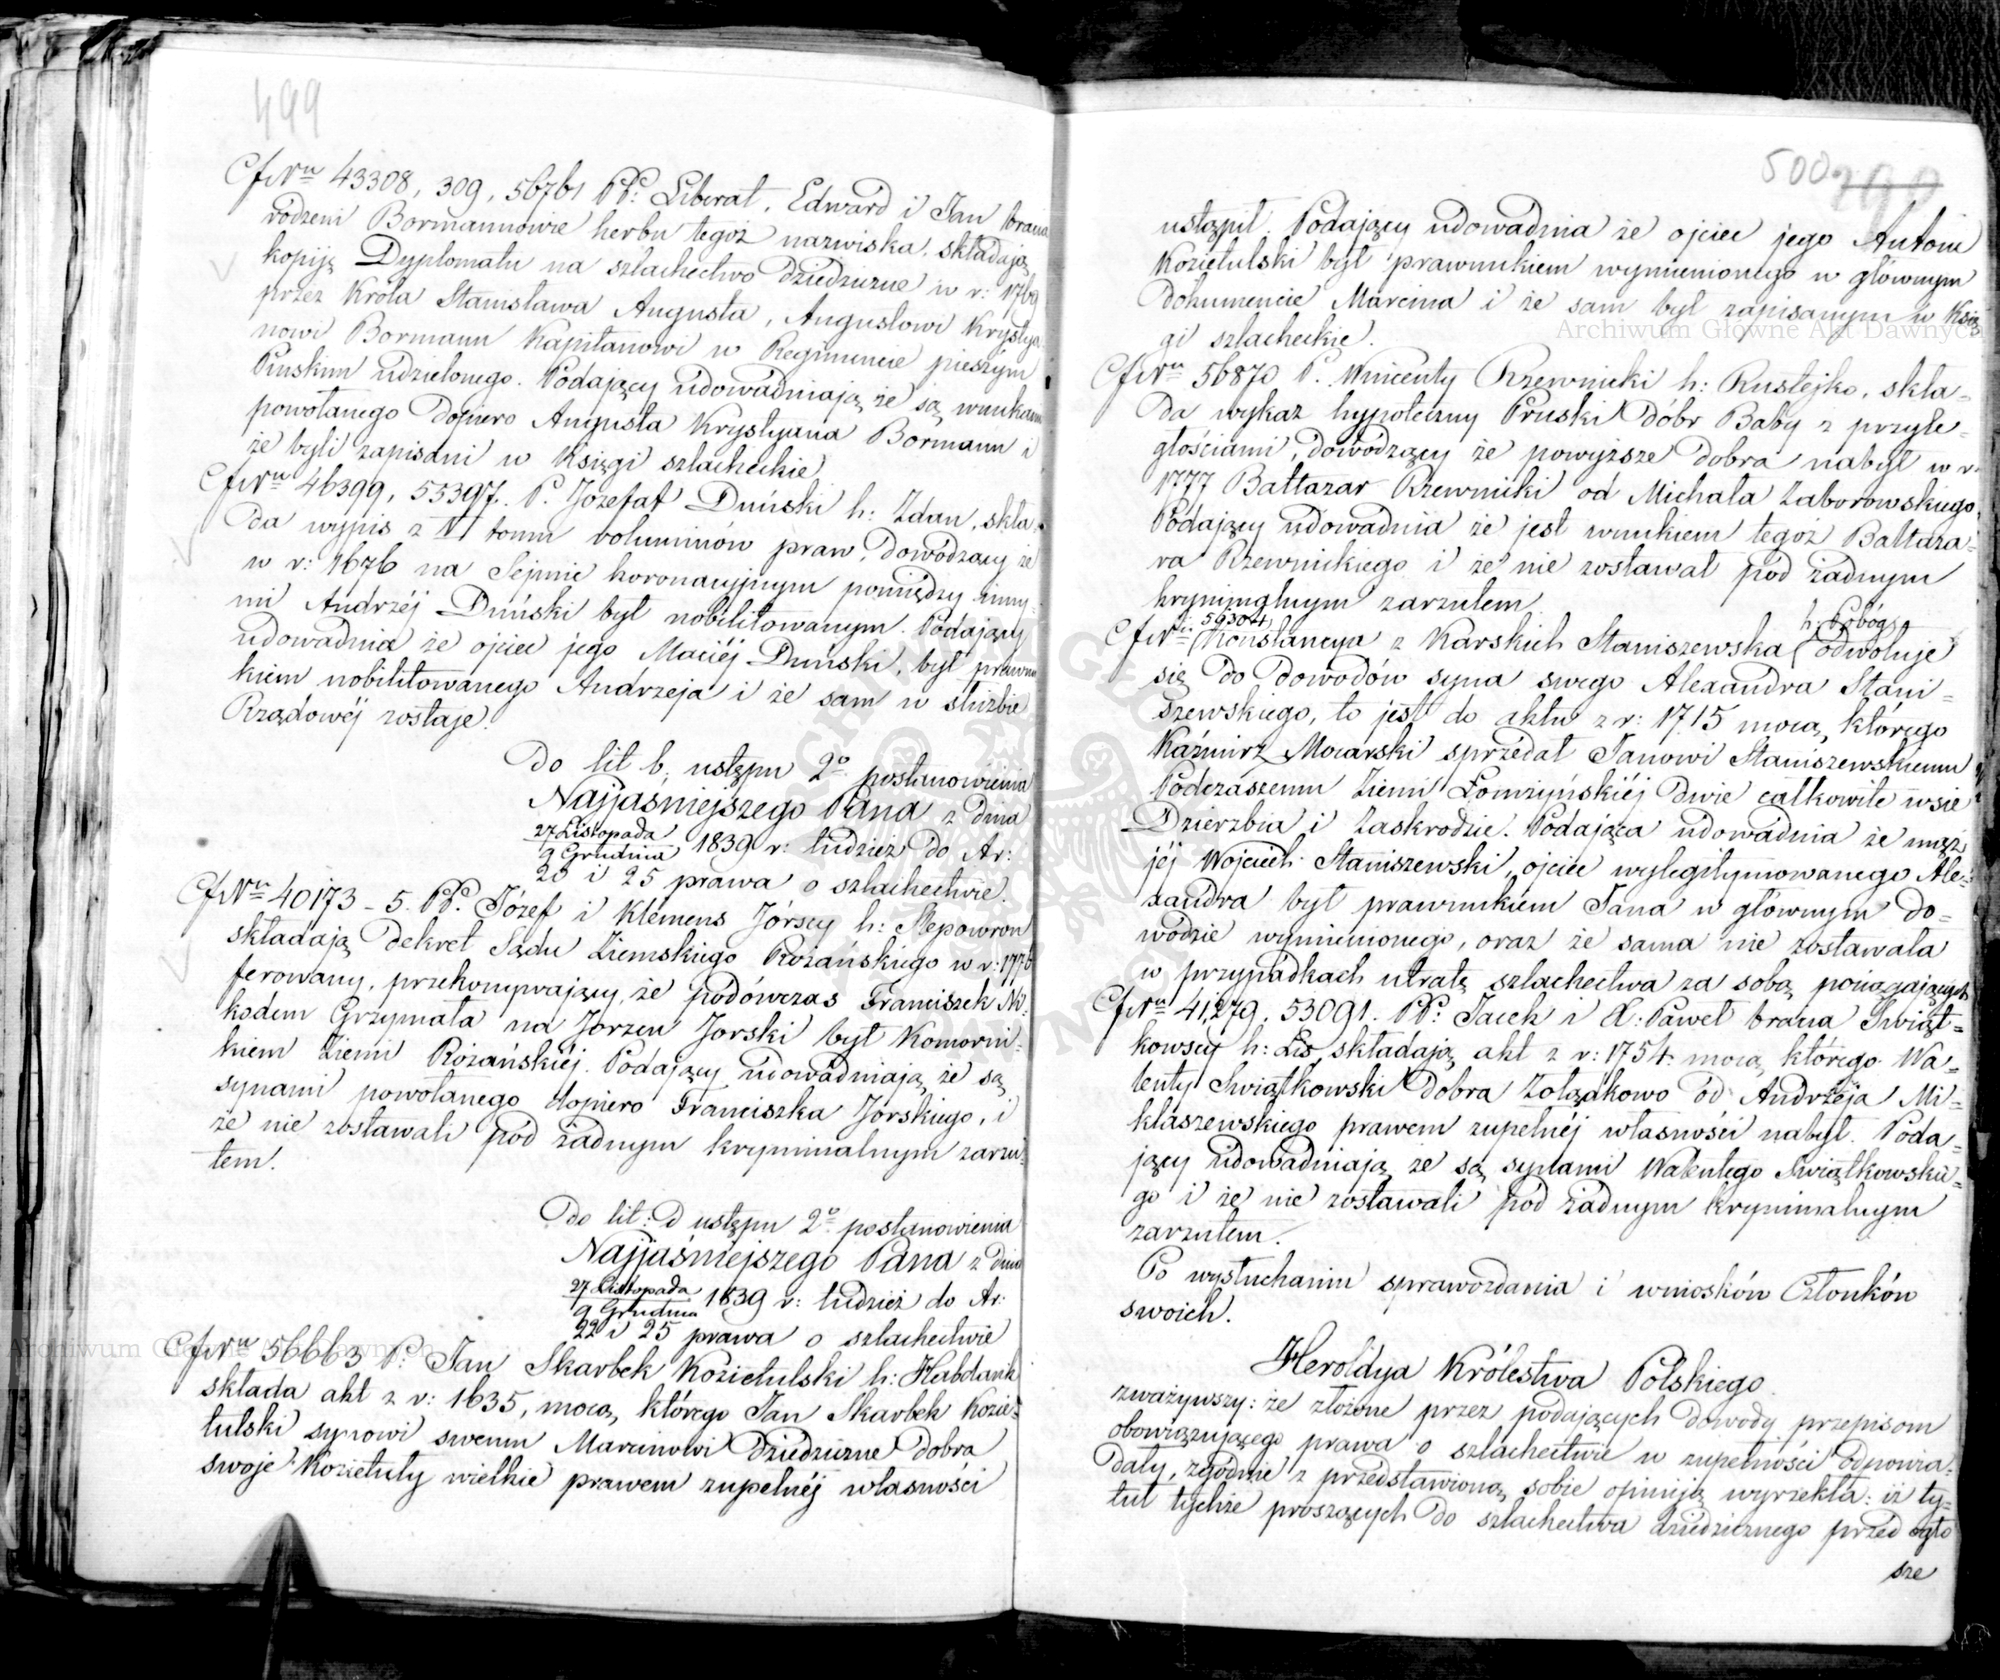 499
Cf Nru 43308, 309, 56761 PP: Liberat, Edward i Jan bracia
rodzeni Bormannowie herbu tegoż nazwiska, składają
kopiję Dyplomatu na szlachectwo dziedziczne w r: 1769
przez Króla Stanisława Augusta, Augustowi Krystya
nowi Bormann Kapitanowi w Regimencie pieszym
Pruskim udzielonego. Podający udowadniają że są wnukami
powołanego dopiero Augusta Krystyana Bormann i
że byli zapisani w Księgi szlacheckie
Cf Nru 46399, 55397. P. Józefat Duński h: Zdan, skła-
da wypis z V tomu voluminów praw, dowodzący że
w r: 1676 na Sejmie koronacyjnym pomiędzy inny-
mi Andrzéj Duński był nobilitowanym. Podający
udowadnia że ojciec jego Maciéj Duński, był prawnu
kiem nobilitowanego Andrzeja i że sam w służbie
Rządowéj zostaje.
Do lit b, ustępu 2o postanowienia
Najjaśniejszego Pana z dnia
27 Listopada
9 Grudnia 1839 r: tudzież do Ar:
20 i 25 prawa o szlachectwie.
Cf Nru 40173-5. PP. Józef i Klemens Jórscy h: Ślepowron
składają dekret Sądu Ziemskiego Rożańskiego w r: 1776
ferowany, przekonywający, że podówczas Franciszek Ni-
kodem Grzymała na Jorzcu Jorski był Komorni-
kiem Ziemi Rożańskiéj. Podający udowadniają, że są
synami powołanego dopiero Franciszka Jorskiego, i
że nie zostawali pod żadnym kryminalnym zarzu-
tem.
Do lit: D ustępu 2o postanowienia
Najjaśniejszego Pana z dnia
27 Listopada
9 Grudnia 1839 r: tudzież do Ar:
22 i 25 prawa o szlachectwie
Cf Nru 56663 P: Jan Skarbek Kozietulski h: Habdank
składa akt z r: 1635, mocą którego Jan Skarbek Kozie-
tulski synowi swemu Marcinowi dziedziczne dobra
swoje Kozietuły wielkie prawem zupełnéj własności
500
ustąpił. Podający udowadnia że ojciec jego Antoni
Kozietulski był prawnukiem wymienionego w głównym
Dokumencie Marcina i że sam był zapisanym w Księ
gi szlacheckie.
Cf Nru 56870 P. Wincenty Rzewnicki h: Rustejko, skła-
da wykaz hypoteczny Pruski dóbr Baby z przyle-
głościami, dowodzący że powyższe dobra nabył w r.
1777 Baltazar Rzewnicki od Michała Zaborowskiego.
Podający udowadnia że jest wnukiem tegoż Baltaza-
ra Rzewnickiego i że nie zostawał pod żadnym
kryminalnym zarzutem.
59304 h: Pobóg
Cf Nri: Konstancya z Karskich Staniszewska odwołuje
się do dowodów syna swego Alexandra Stani-
szewskiego, to jest do aktu z r: 1715 mocą, którego
Kaźmirz Mocarski sprzedał Janowi Staniszewskiemu
Podczaszemu Ziemi Łomżyńskiéj dwie całkowite wsie
Dzierzbia i Zaskrodzie. Podająca udowadnia że mąż
jéj Wojciech Staniszewski, ojciec wylegitymowanego Ale-
xandra był prawnukiem Jana w głównym do-
wodzie wymienionego, oraz że sama nie zostawała
w przypadkach utratę szlachectwa za sobą pociągających
Cf Nru 41,279, 53091. PP: Jacek i X: Paweł bracia Świąt-
kowscy h: Lis, składają akt z r: 1754 mocą którego Wa-
lenty Świątkowski dobra Żołądkowo od Andrzeja Mi-
kłaszewskiego prawem zupełnéj własności nabył. Poda-
jący udowadniają że są synami Walentego Świątkowskie-
go i że nie zostawali pod żadnym kryminalnym
zarzutem.
Po wysłuchaniu sprawozdania i wniosków Członków
swoich.
Heroldya Królestwa Polskiego
zważywszy: że złożone przez podających dowody przepisom
obowiązującego prawa o szlachectwie w zupełności odpowia-
dały, zgodnie z przedstawioną sobie opiniją wyrzekła: iż ty-
tuł tychże proszących do szlachectwa dziedzicznego przed ogło
sze
Archiwum Główne Akt Dawnych
Archiwum Główne Akt Dawnych